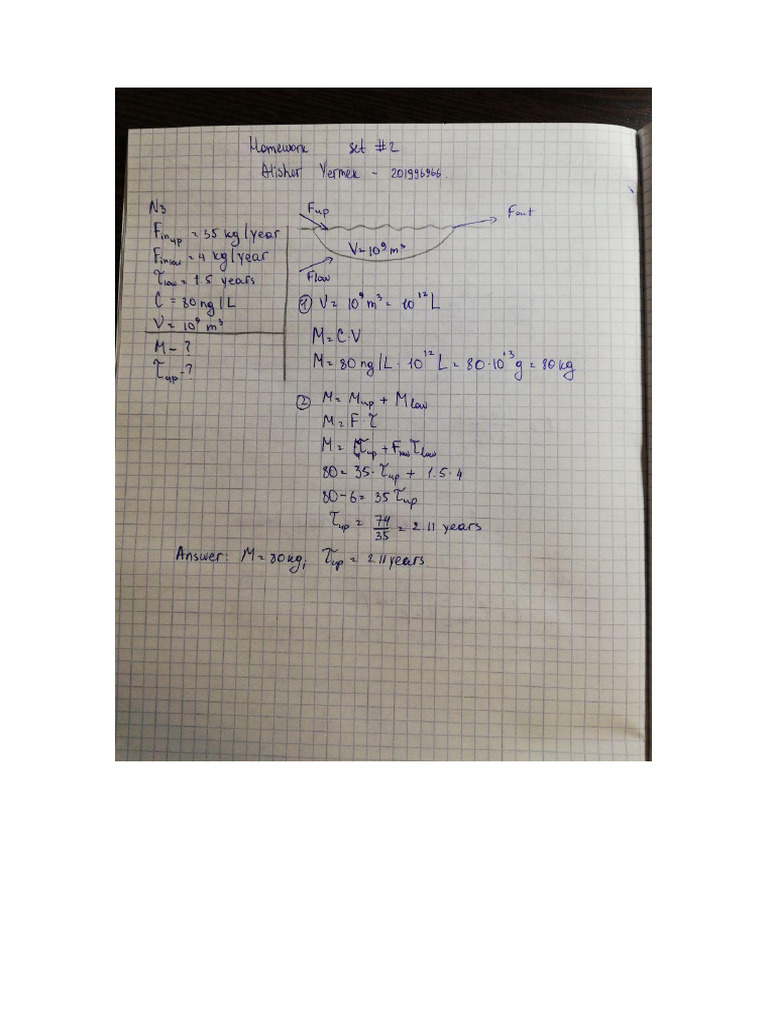 Homework set #2
Alisher Yermek - 201996966.
N3
F in up = 35 kg/year
F in low = 4 kg/year
τ low = 1.5 years
C = 80 ng/L
V = 10⁹ m³
M - ?
τ up - ?
F up
F out
V = 10⁹ m³
F low
① V = 10⁹ m³ = 10¹² L
M = C·V
M = 80 ng/L · 10¹² L = 80·10³ g = 80 kg
② M = M up + M low
M = F·τ
M = τ up + F low τ low
80 = 35·τ up + 1.5·4
80-6 = 35 τ up
τ up = 74/35 = 2.11 years
Answer: M = 80 kg; τ up = 2.11 years.